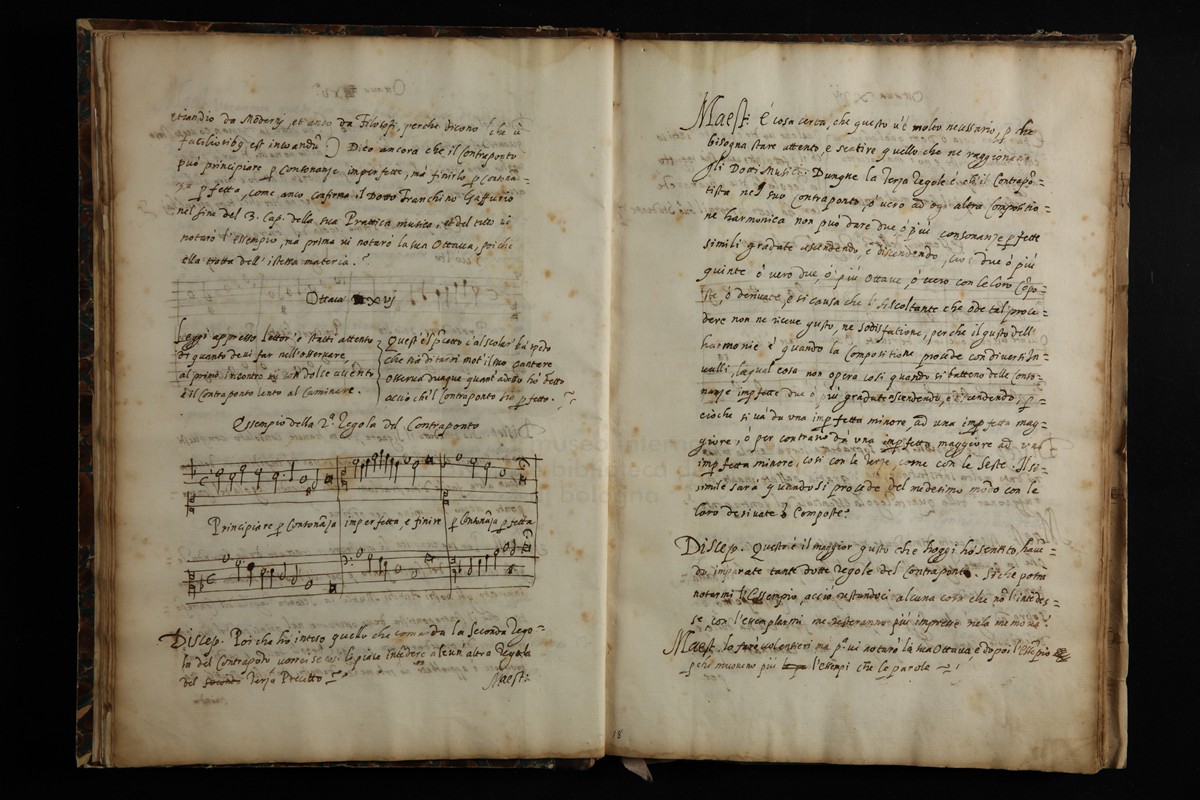 etiandio da Moderni, et anco da Filosofi, perche dicono che à
facilioribq est inchoandũ:) Dico ancora che il Contraponto
può principiare p Consonanze imperfette, mà finirlo p Conson=
za pfetta, come anco cõfirma il Dotto Franchino Gaffurio
nel fine del 3. Cap. della sua Prattica musica, et del tutto vi
notarò l'essempio, mà prima vi notarò la sua Ottava, poi che
ella tratta dell'istessa materia.
Ottava XVj
Leggi appresso lettor e statti attento
di quanto devi far nell'osservare,
al primo incontro vi con dolce
è il Contraponto lento al Caminare.
Quest'è'l pcetto ch'al scolar hà
che nõ di tarsi mot'il suo Cantare
Osserva dunque quant'adesso hò detto
acciò ch'il Contraponto sia pfetto.
Essempio della 2.ª Regola del Contraponto
Principiare p Consonãza imperfetta e finire p Consonãza pfetta
Discep. Poi che hò inteso quello che comanda la Seconda Rego=
la del Contraponto vorrei se così le piace intẽdere alcun'altra Regola
del secondo Terza Precetto
Maest:
Maest: È cosa certa, che questo v'è molto necessario, p che
bisogna stare attento, e sentire quello che ne raggionano
gli Dotti Musici. Dunque la Terza Regole è ch il Contrapõ=
tista nel suo Contraponto, ò vero ad ogni altra Compositio=
ne harmonica non può dare due ò più consonanze pfette
simili gradate ascendendo, e discendendo, cioè due ò più
quinte ò vero due, ò più Ottave, ò vero con le loro Cõpo=
ste, ò derivate, e si causa che l'Ascoltante che ode tal proce=
dere non ne riceve gusto, ne sodisfatione, perche il gusto dell'
harmonie è quando la Compositione procede con diversi in=
tervalli, la qual cosa non opera così quando si tratteno delle Conso=
nanze impfette due ò più gradate ascendendo, e discendendo, p=
cioche si và da una impfetta minore, ad una impfetta mag=
giore, ò per contrario dà una impfetta maggiore ad una
impfetta minore, così con le Terze, come con le Seste. Il si=
simile sarà quando si procede del medesimo modo con le
loro derivate ò Composte.
Discep. Quest'è il maggior gusto che hoggi hò sentito, havẽ=
do imparate tante dotte regole del Contraponto. Si che potrà
notarmi l'Essempio, acciò restandoci alcuna cosa che nõ l'intẽdes=
se con l'esemplarmi me resteranno più impresse nela memoria.
Maest. Io farò volentieri mà pª vi notarò là sua Ottava e dopoi l'essẽpio
pche muoveno più l'essempi che le parole
18